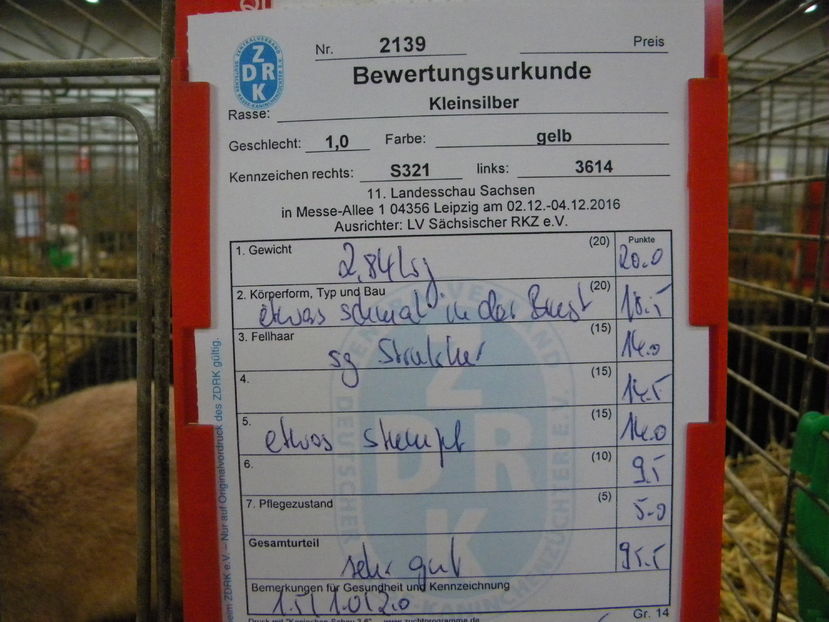 Nr. 2139 Preis
ZDRK
Bewertungsurkunde
Rasse: Kleinsilber
Geschlecht: 1,0 Farbe: gelb
Kennzeichen rechts: S321 links: 3614
11. Landesschau Sachsen
in Messe-Allee 1 04356 Leipzig am 02.12.-04.12.2016
Ausrichter: LV Sächsischer RKZ e.V.
Punkte
1. Gewicht (20) 2,84 kg 20.0
2. Körperform, Typ und Bau (20) etwas schmal in der Brust 18.5
3. Fellhaar (15) sg Struktur 14.0
4. (15) 14.5
5. (15) etwas stumpf 14.0
6. (10) 9.5
7. Pflegezustand (5) 5.0
Gesamturteil sehr gut 95.5
Bemerkungen für Gesundheit und Kennzeichnung
1.5/1.0/2.0
Gr. 14
Nur auf Originalvordruck des ZDRK gültig.